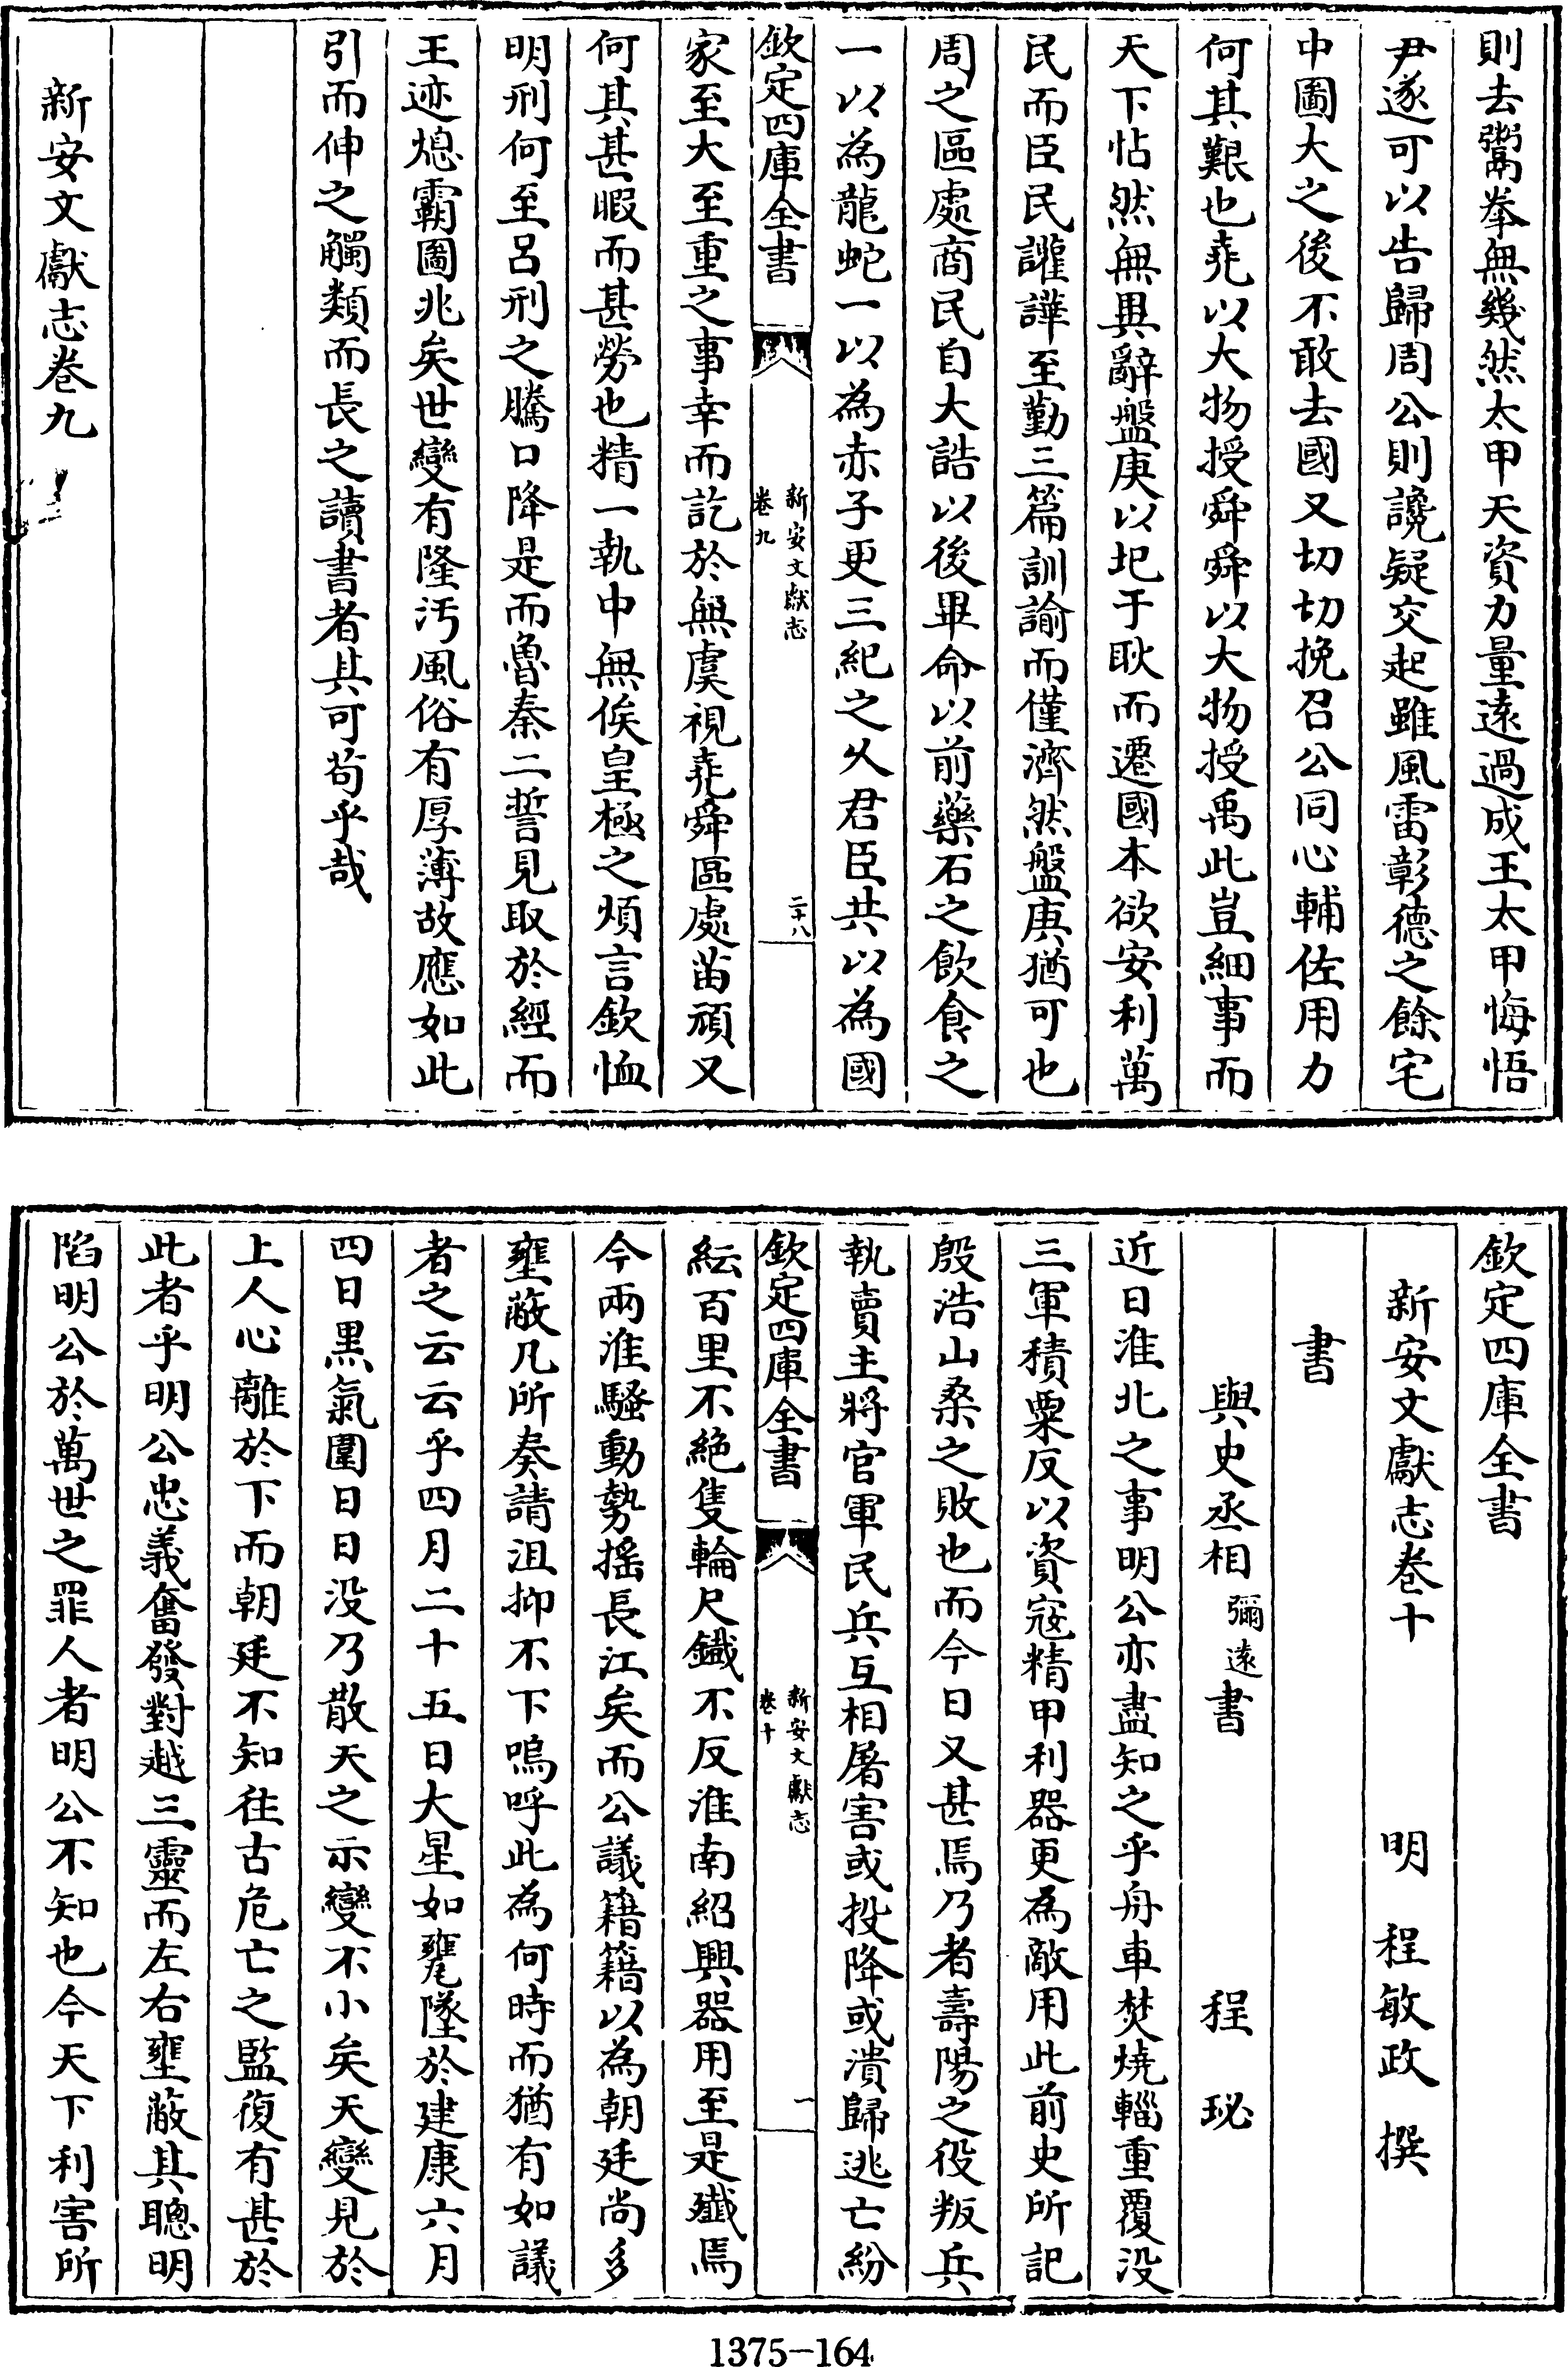 則去鬻拳無幾然太甲天資力量遠過成王太甲悔悟
尹遂可以告歸周公則讒疑交起雖風雷彰德之餘宅
中圖大之後不敢去國又切切挽召公同心輔佐用力
何其艱也堯以大物授舜舜以大物授禹此豈細事而
天下帖然無異辭盤庚以圯于耿而遷國本欲安利萬
民而臣民讙譁至勤三篇訓諭而僅濟然盤庚猶可也
周之區處商民自大誥以後畢命以前藥石之飲食之
一以為龍蛇一以為赤子更三紀之乆君臣共以為國
欽定四庫全書
新安文獻志
卷九
二十八
家至大至重之事幸而訖於無虞視堯舜區處苗頑又
何其甚暇而甚勞也精一執中無俟皇極之煩言欽恤
明刑何至呂刑之騰口降是而魯秦二誓見取於經而
王迹熄霸圖兆矣世變有隆汚風俗有厚薄故應如此
引而伸之觸類而長之讀書者其可苟乎哉
新安文獻志卷九
欽定四庫全書
新安文獻志卷十
明 程敏政 撰
書
與史丞相彌遠書 程珌
近日淮北之事明公亦盡知之乎舟車焚燒輜重覆沒
三軍積粟反以資寇精甲利器更為敵用此前史所記
殷浩山桑之敗也而今日又甚焉乃者壽陽之役叛兵
執賣主將官軍民兵互相屠害或投降或潰歸逃亡紛
紜百里不絶隻輪尺鐵不反淮南紹興器用至是殲焉
欽定四庫全書
新安文獻志
卷十
一
今兩淮騷動勢搖長江矣而公議籍籍以為朝廷尚多
壅蔽凡所奏請沮抑不下嗚呼此為何時而猶有如議
者之云云乎四月二十五日大星如甕墜於建康六月
四日黑氣圍日日没乃散天之示變不小矣天變見於
上人心離於下而朝廷不知徃古危亡之監復有甚於
此者乎明公忠義奮發對越三靈而左右壅蔽其聰明
陷明公於萬世之罪人者明公不知也今天下利害所
1375-164